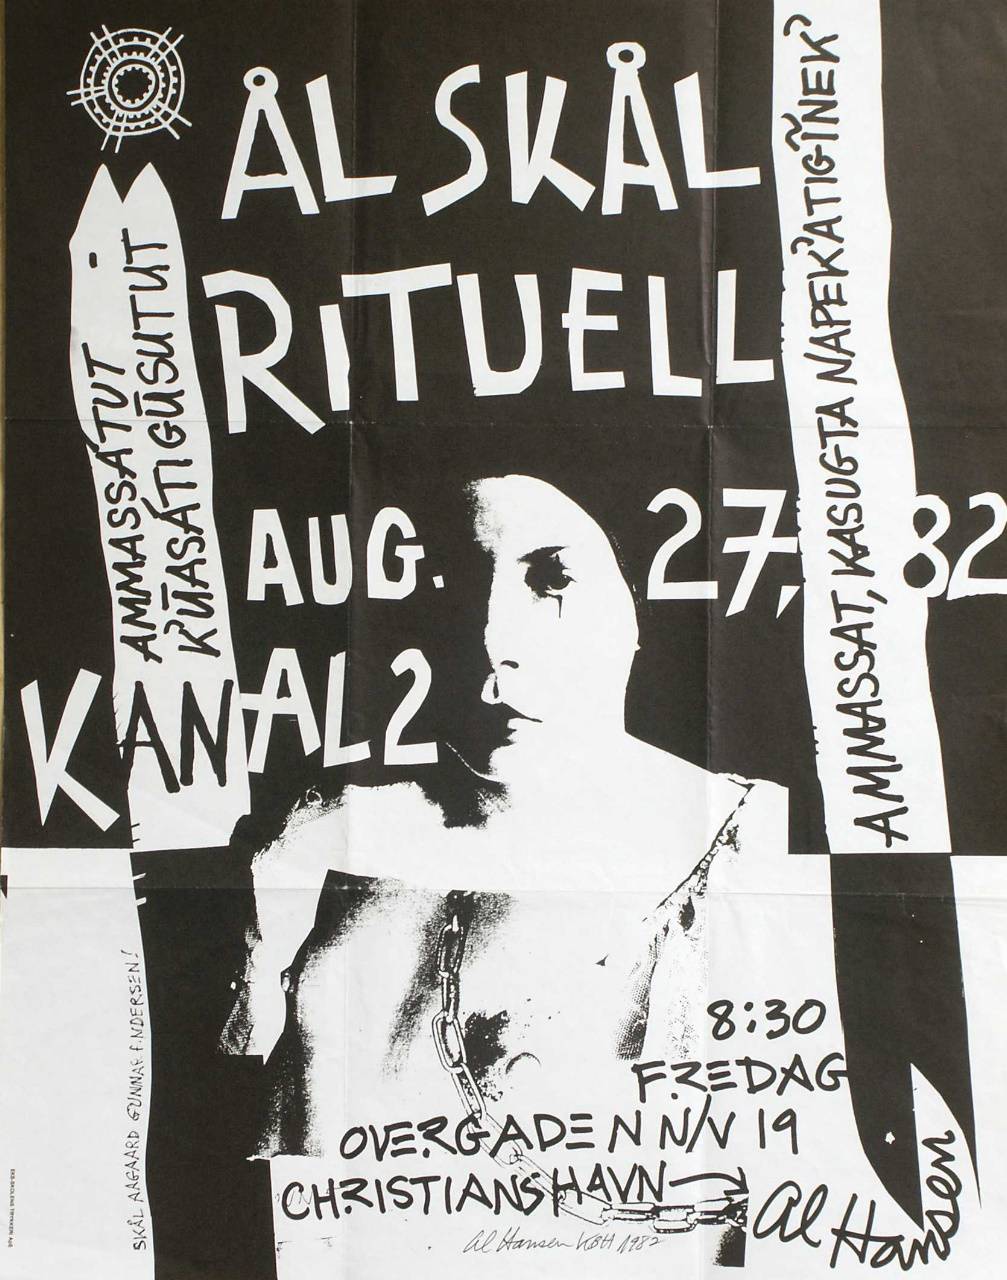 ÅL SKÅL
RITUELL
AUG. 27, 82
KANAL 2
AMMASSATUT
K'ŪASÁTIGŪSUTUT
AMMASSAT, KASUGTA NAPEK'ATIGĨNEK'
8:30
FREDAG
OVERGADEN N/V 19
CHRISTIANSHAVN
Al Hansen
Al Hansen KBH 1982
SKÅL AAGAARD GUNNAR ANDERSEN!